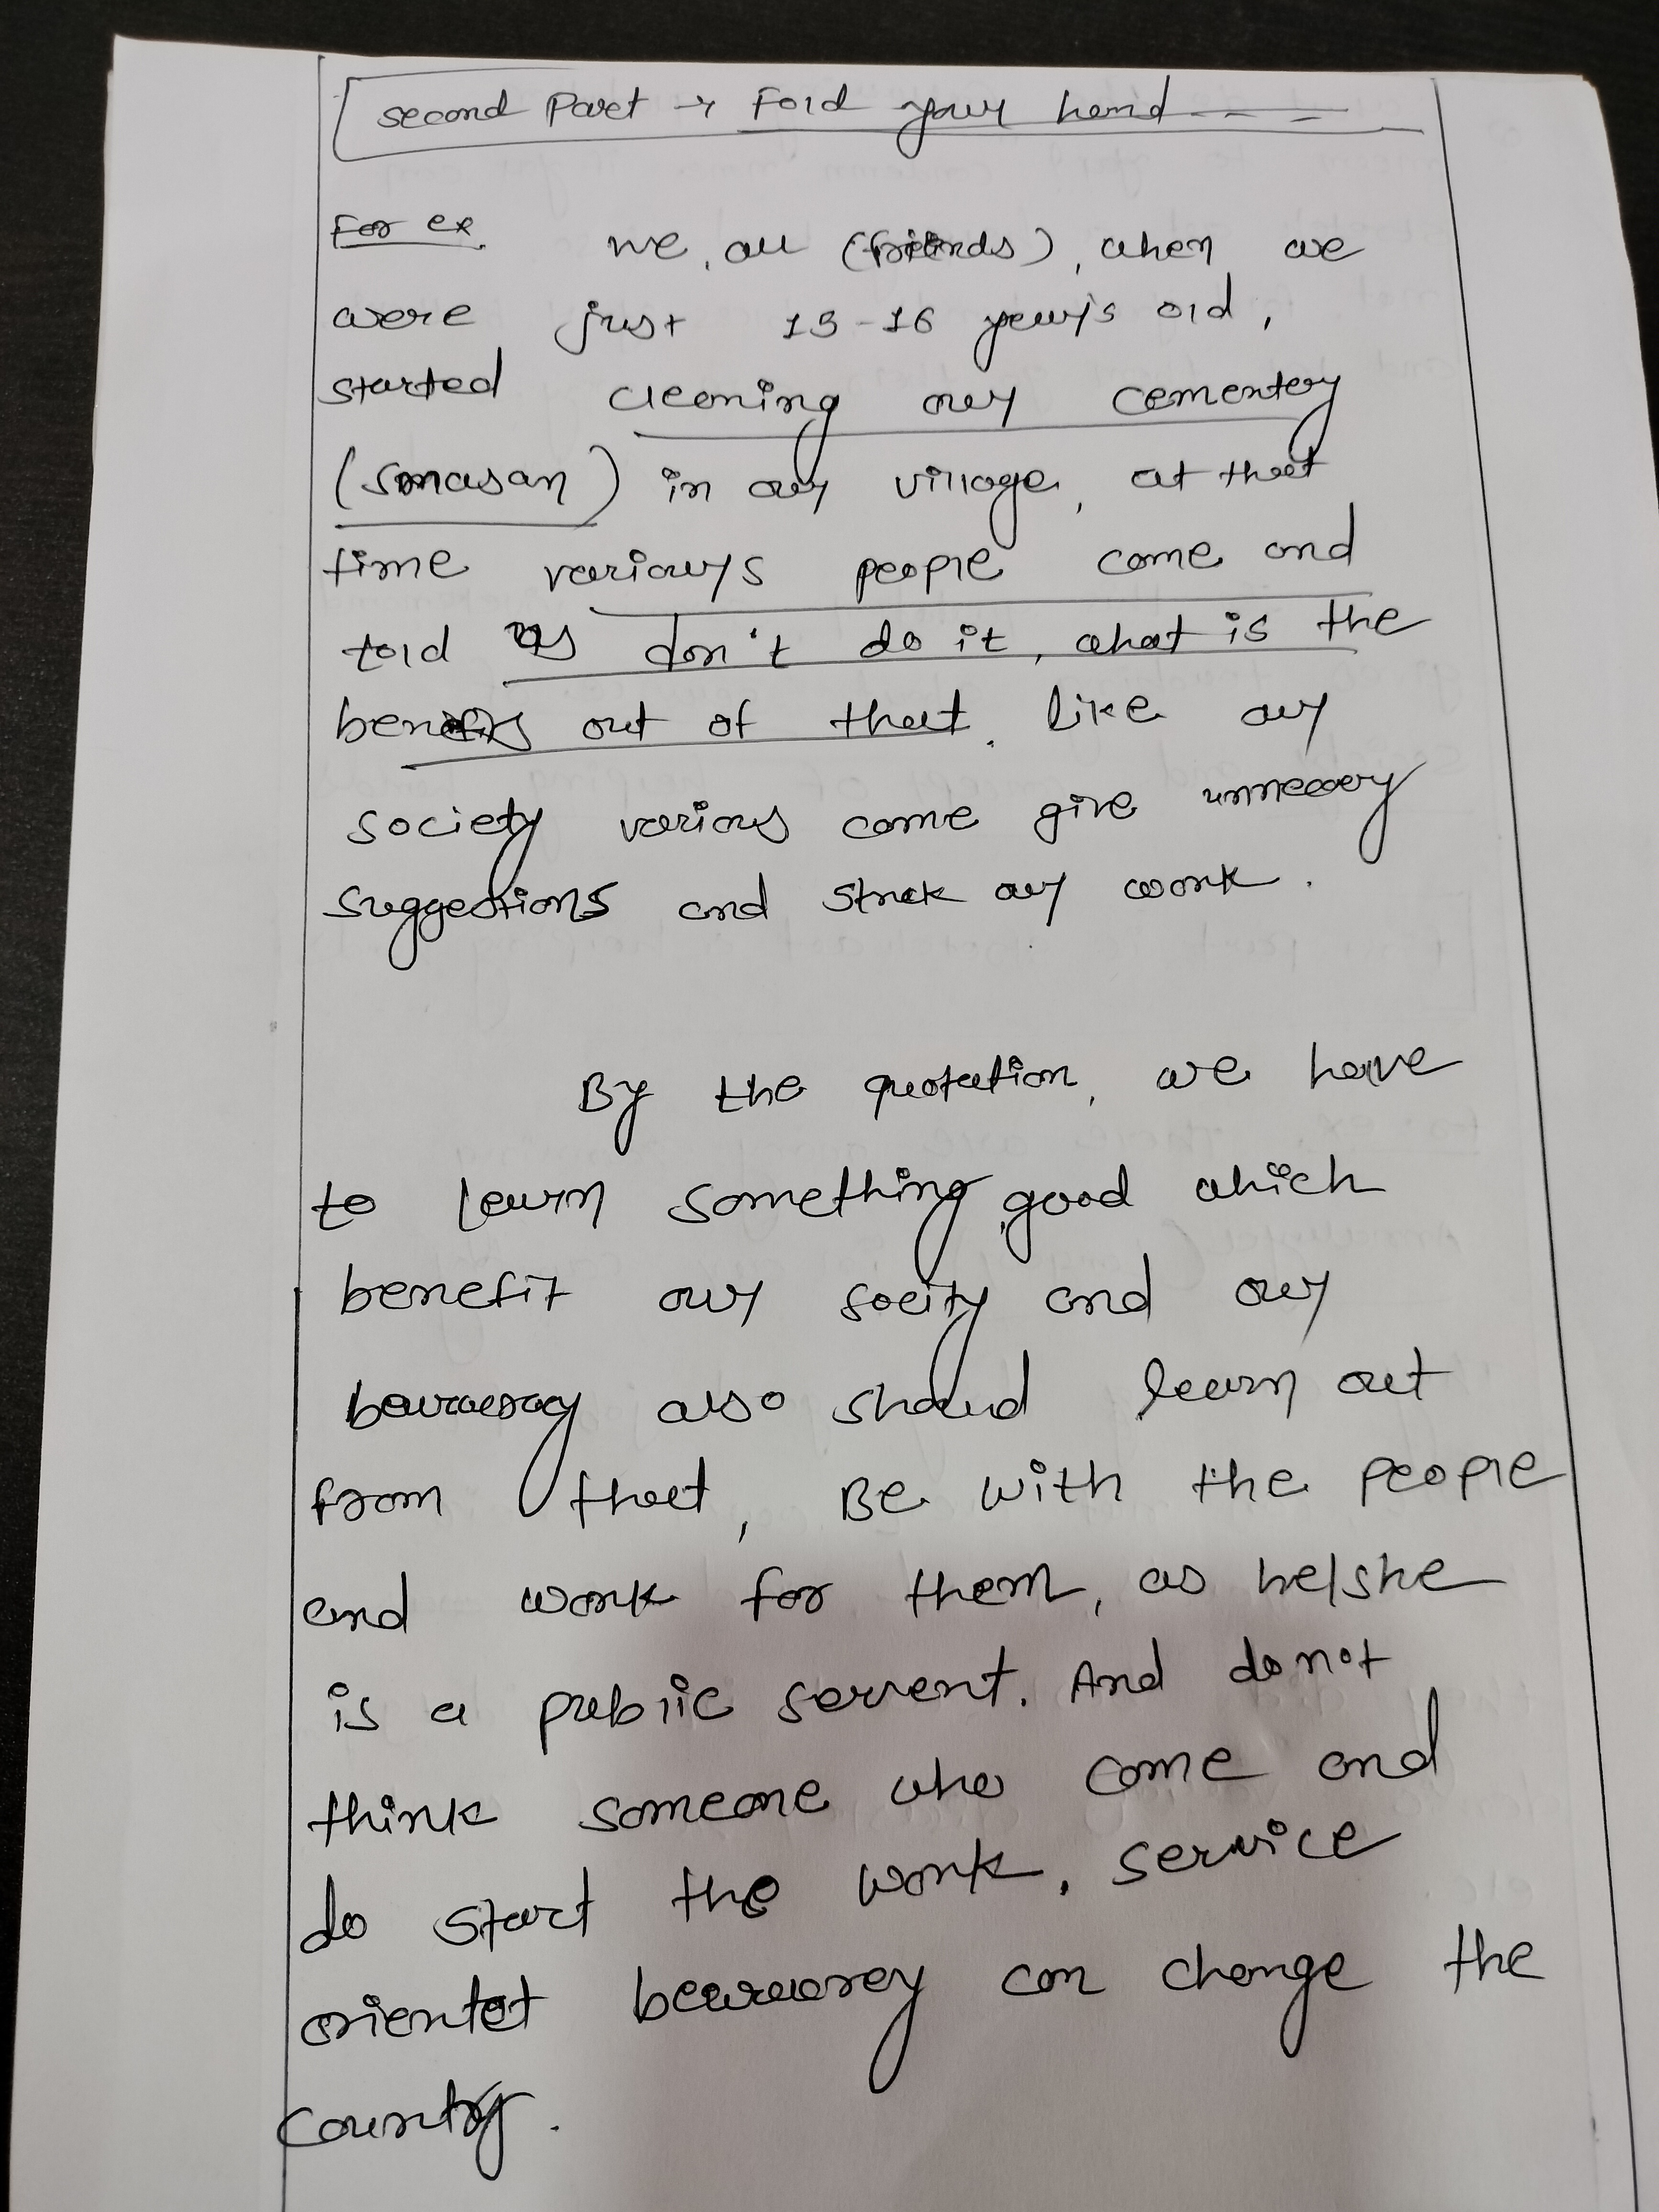 second Part → Fold your hand - - =
For ex. we, all (friends), when we
were just 15-16 years old,
started cleaning our cementery
(Smasan) in our village, at that
time various people come and
told us don't do it, what is the
benefits out of that. like our
society various come give unnecery
suggestions and struck our work.
By the quotation, we have
to learn something good which
benefit our socity and our
beuraucracy also should learn out
from that, Be with the people
and work for them, as he/she
is a public servent. And do not
think someone who come and
do start the work. service
orientet beuraucrcy can change the
country.